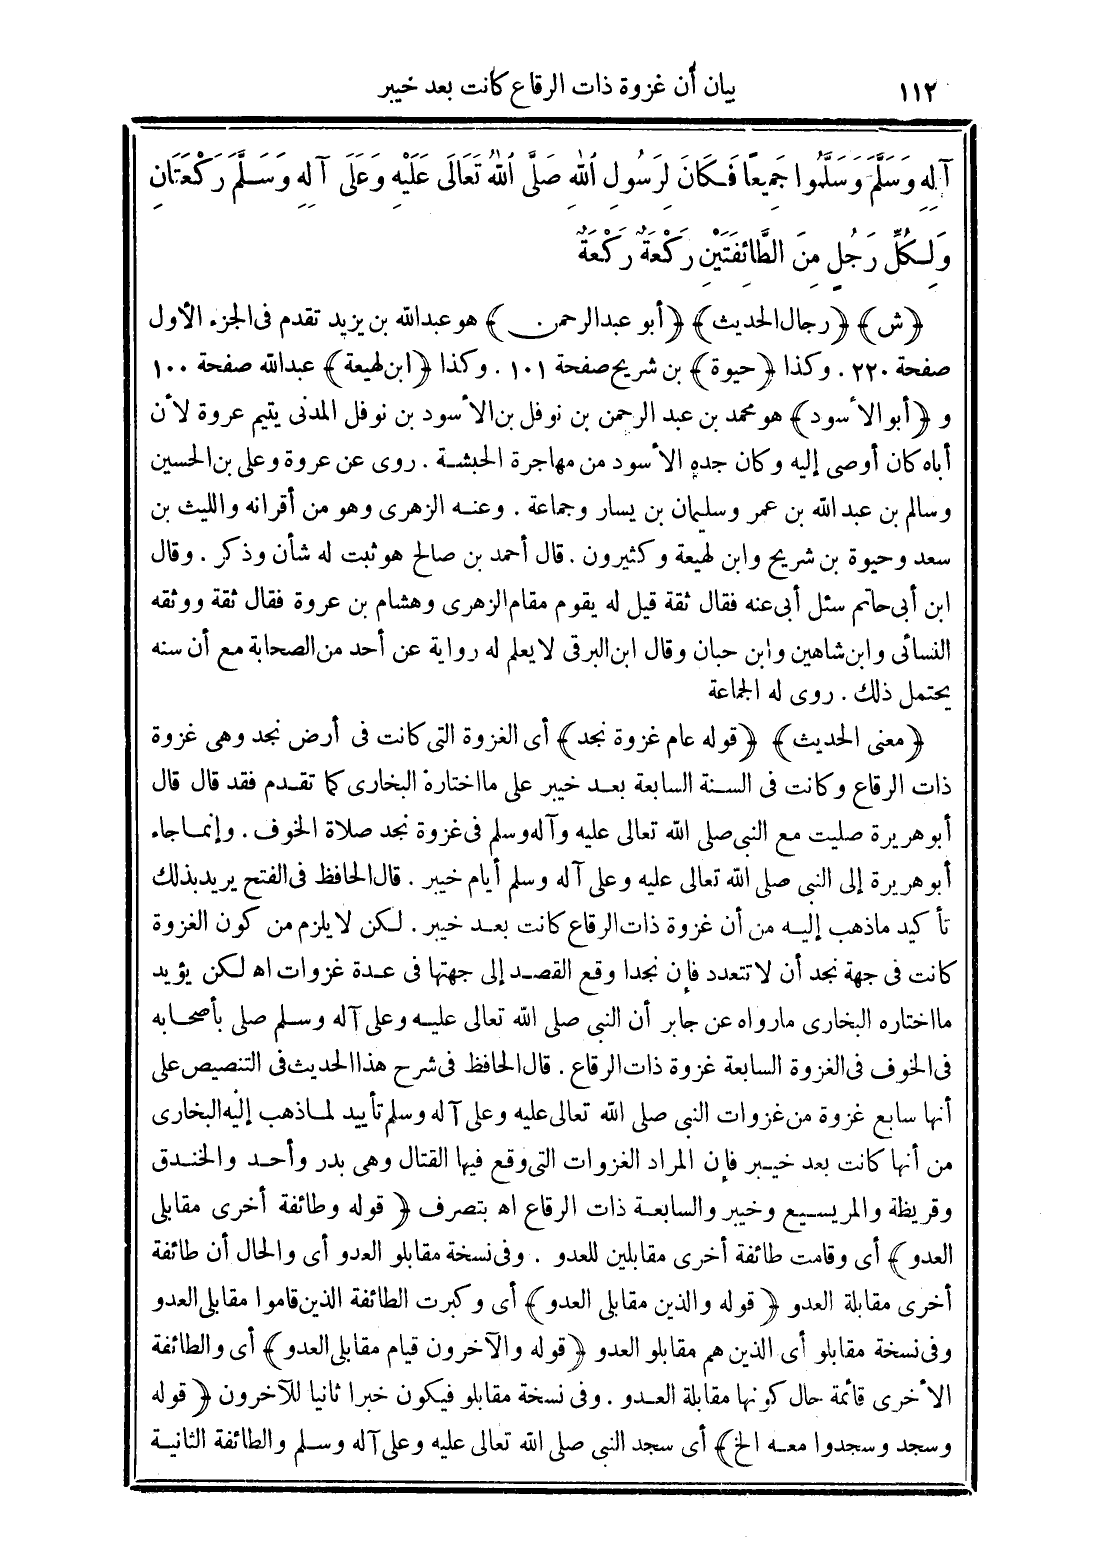 ١١٢
بيان أن غزوة ذات الرقاع كانت بعد خيبر
آلِهِ وَسَلَّمَ وَسَلَّمُوا جَمِيعًا فَكَانَ لِرَسُولِ اللهِ صَلَّى اللهُ تَعَالَى عَلَيْهِ وَعَلَى آلِهِ وَسَلَّمَ رَكْعَتَانِ
وَلِكُلِّ رَجُلٍ مِنَ الطَّائِفَتَيْنِ رَكْعَةٌ رَكْعَةٌ
﴿ش﴾ ﴿رجال الحديث﴾ ﴿أبو عبد الرحمن﴾ هو عبد الله بن يزيد تقدم فى الجزء الأول
صفحة ٢٢٠ . وكذا ﴿حيوة﴾ بن شريح صفحة ١٠١ . وكذا ﴿ابن لهيعة﴾ عبد الله صفحة ١٠٠
و ﴿أبو الأسود﴾ هو محمد بن عبد الرحمن بن نوفل بن الأسود بن نوفل المدنى يتيم عروة لأن
أباه كان أوصى إليه وكان جده الأسود من مهاجرة الحبشة . روى عن عروة وعلى بن الحسين
وسالم بن عبد الله بن عمر وسليمان بن يسار وجماعة . وعنه الزهرى وهو من أقرانه والليث بن
سعد وحيوة بن شريح وابن لهيعة وكثيرون . قال أحمد بن صالح هو ثبت له شأن وذكر . وقال
ابن أبى حاتم سئل أبى عنه فقال ثقة قيل له يقوم مقام الزهرى وهشام بن عروة فقال ثقة ووثقه
النسائى وابن شاهين وابن حبان وقال ابن البرقى لا يعلم له رواية عن أحد من الصحابة مع أن سنه
يحتمل ذلك . روى له الجماعة
﴿معنى الحديث﴾ ﴿قوله عام غزوة نجد﴾ أى الغزوة التى كانت فى أرض نجد وهى غزوة
ذات الرقاع وكانت فى السنة السابعة بعد خيبر على ما اختاره البخارى كما تقدم فقد قال قال
أبو هريرة صليت مع النبى صلى الله تعالى عليه وآله وسلم فى غزوة نجد صلاة الخوف . وإنما جاء
أبو هريرة إلى النبى صلى الله تعالى عليه وعلى آله وسلم أيام خيبر . قال الحافظ فى الفتح يريد بذلك
تأكيد ما ذهب إليه من أن غزوة ذات الرقاع كانت بعد خيبر . لكن لا يلزم من كون الغزوة
كانت فى جهة نجد أن لا تتعدد فإن نجدا وقع القصد إلى جهتها فى عدة غزوات اه لكن يؤيد
ما اختاره البخارى ما رواه عن جابر أن النبى صلى الله تعالى عليه وعلى آله وسلم صلى بأصحابه
فى الخوف فى الغزوة السابعة غزوة ذات الرقاع . قال الحافظ فى شرح هذا الحديث فى التنصيص على
أنها سابع غزوة من غزوات النبى صلى الله تعالى عليه وعلى آله وسلم تأييد لما ذهب إليه البخارى
من أنها كانت بعد خيبر فإن المراد الغزوات التى وقع فيها القتال وهى بدر وأحد والخندق
وقريظة والمريسيع وخيبر والسابعة ذات الرقاع اه بتصرف ﴿قوله وطائفة أخرى مقابلى
العدو﴾ أى وقامت طائفة أخرى مقابلين للعدو . وفى نسخة مقابلو العدو أى والحال أن طائفة
أخرى مقابلة العدو ﴿قوله والذين مقابلى العدو﴾ أى وكبرت الطائفة الذين قاموا مقابلى العدو
وفى نسخة مقابلو أى الذين هم مقابلو العدو ﴿قوله والآخرون قيام مقابلى العدو﴾ أى والطائفة
الأخرى قائمة حال كونها مقابلة العدو . وفى نسخة مقابلو فيكون خبرا ثانيا للآخرون ﴿قوله
وسجد وسجدوا معه الخ﴾ أى سجد النبى صلى الله تعالى عليه وعلى آله وسلم والطائفة الثانية